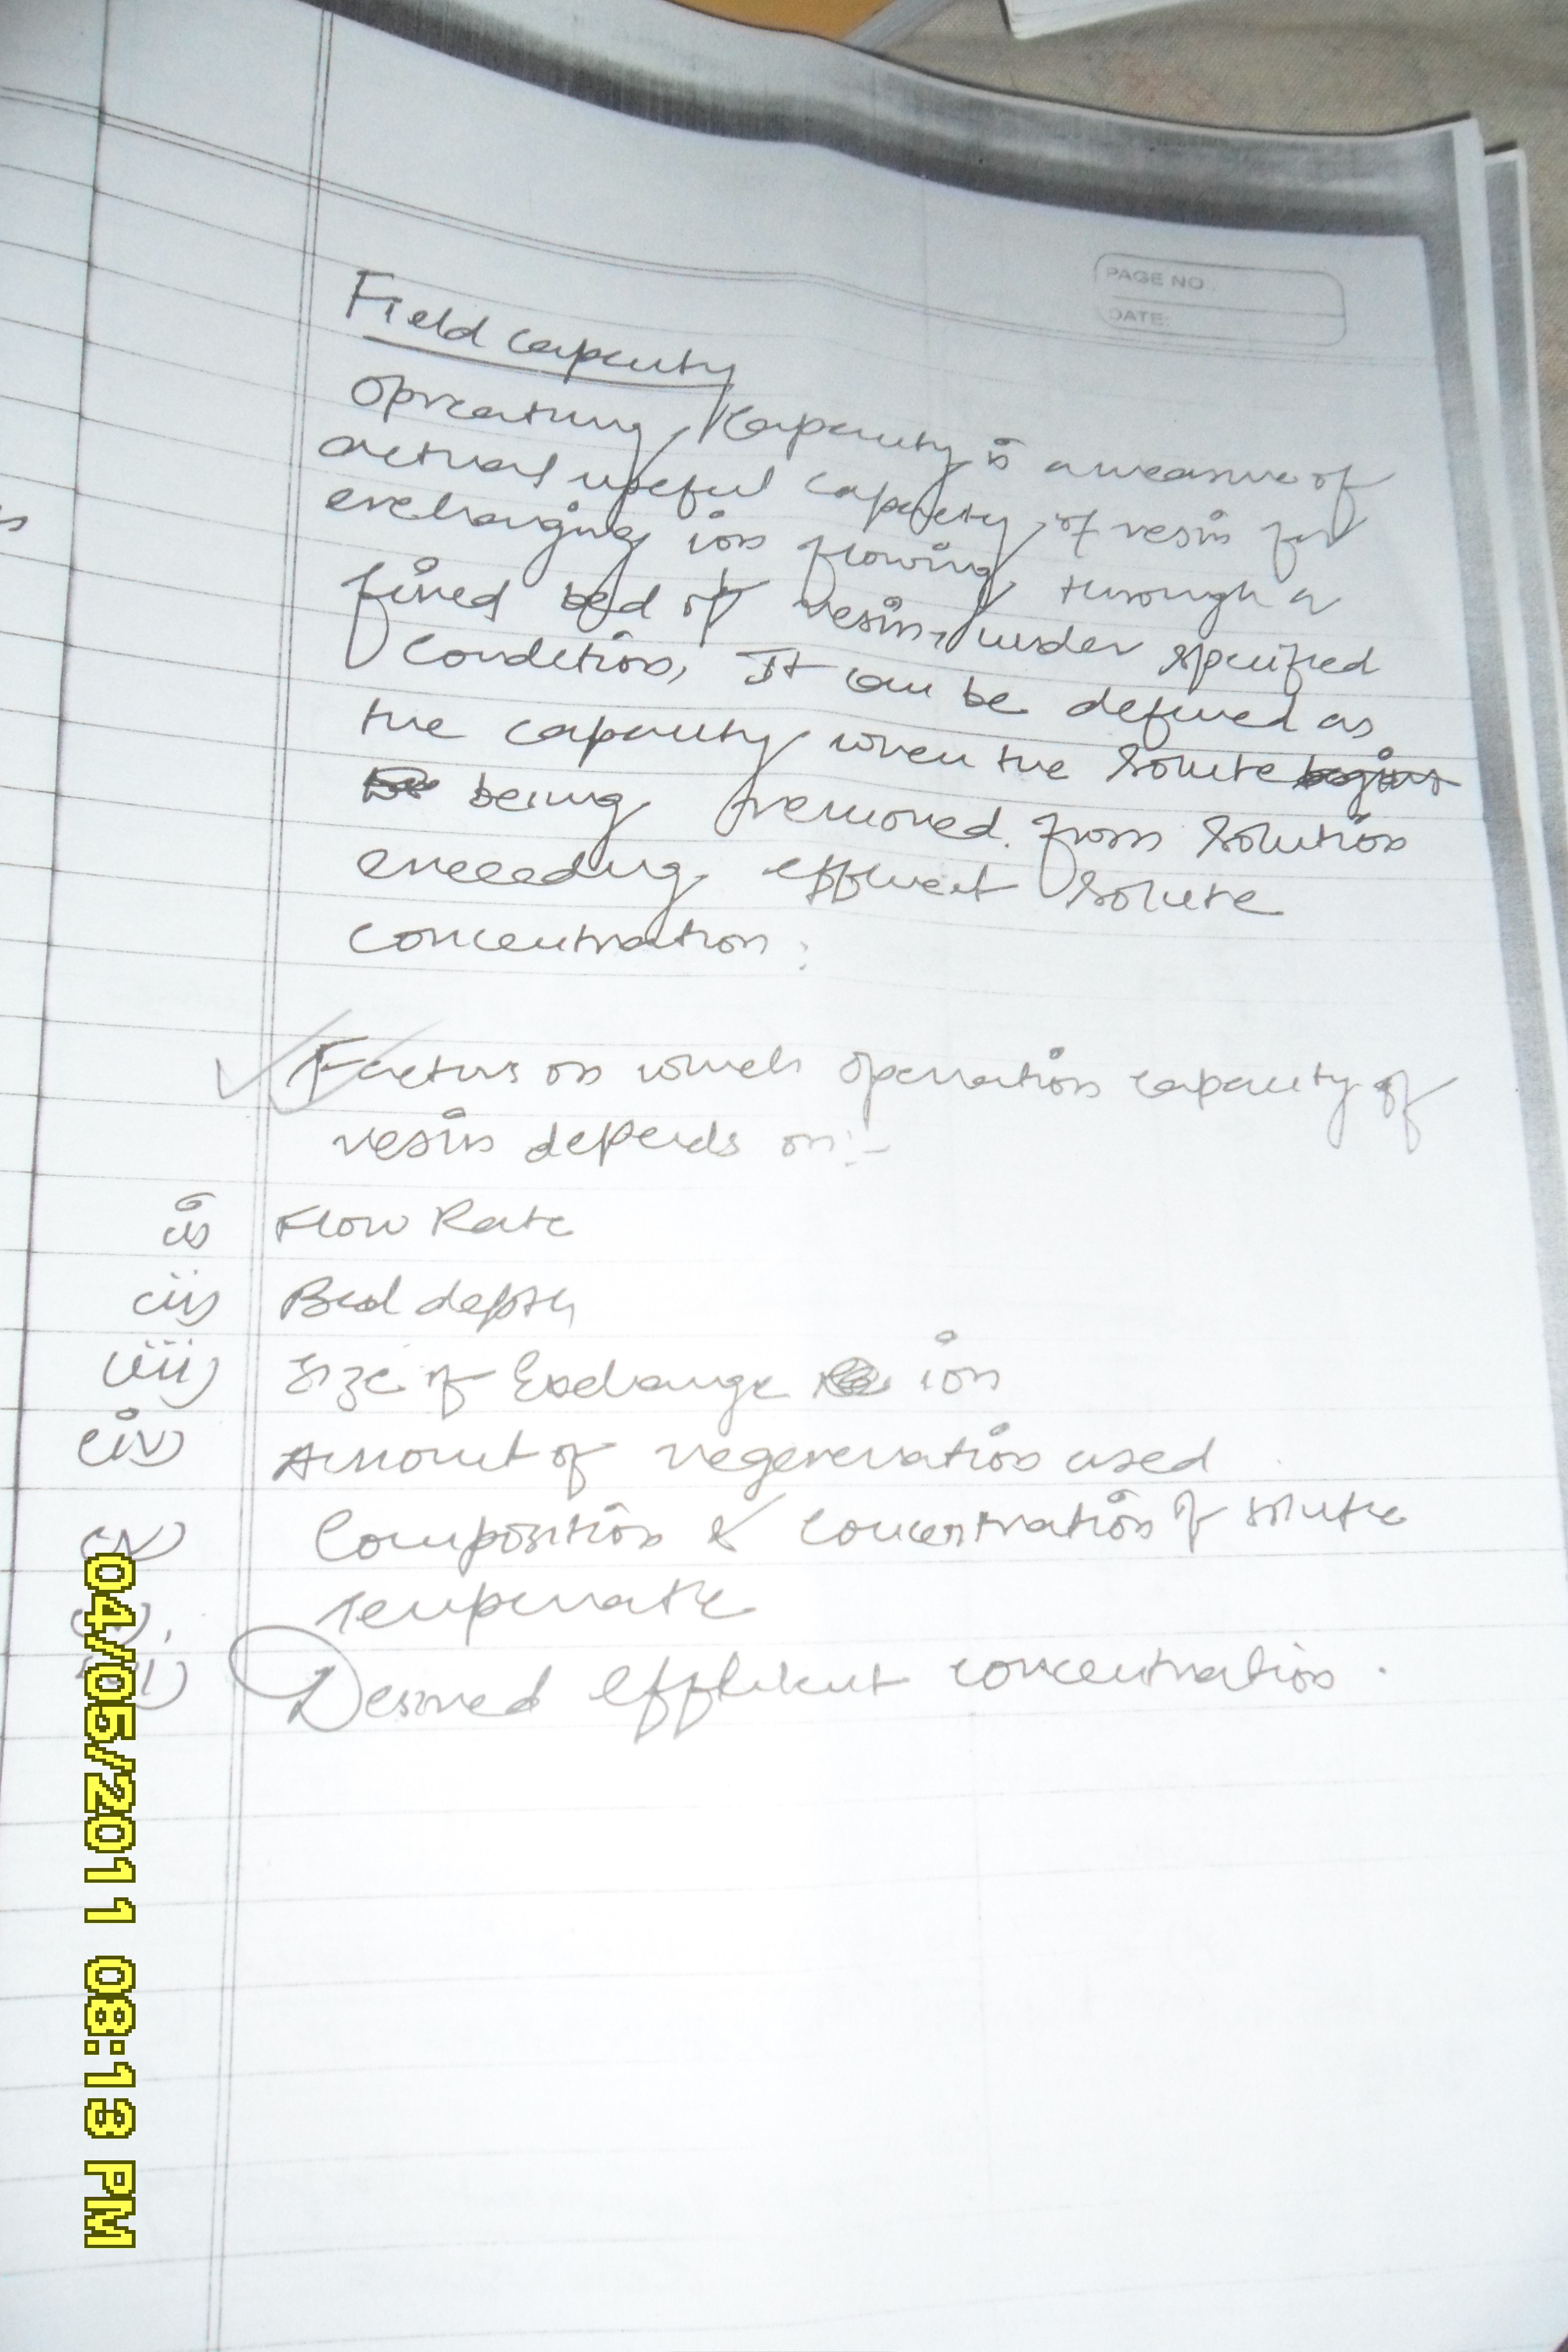 PAGE NO.
DATE:
Field capacity
Opreating capacity is a measure of
actual useful capacity of resin for
exchanging ion flowing through a
fixed bed of resin, under specified
Condition, It can be defined as
the capacity when the solute begins
being removed from solution
exceeding effluent solute
concentration.
Factors on which operation capacity of
resin depends on:-
(i) Flow Rate
(ii) Bed depth
(iii) Size of Exchange ion
(iv) Amount of regeneration used
(v) Composition & concentration of solute
Temperate
Desired effluent concentration.
04/05/2011 08:13 PM